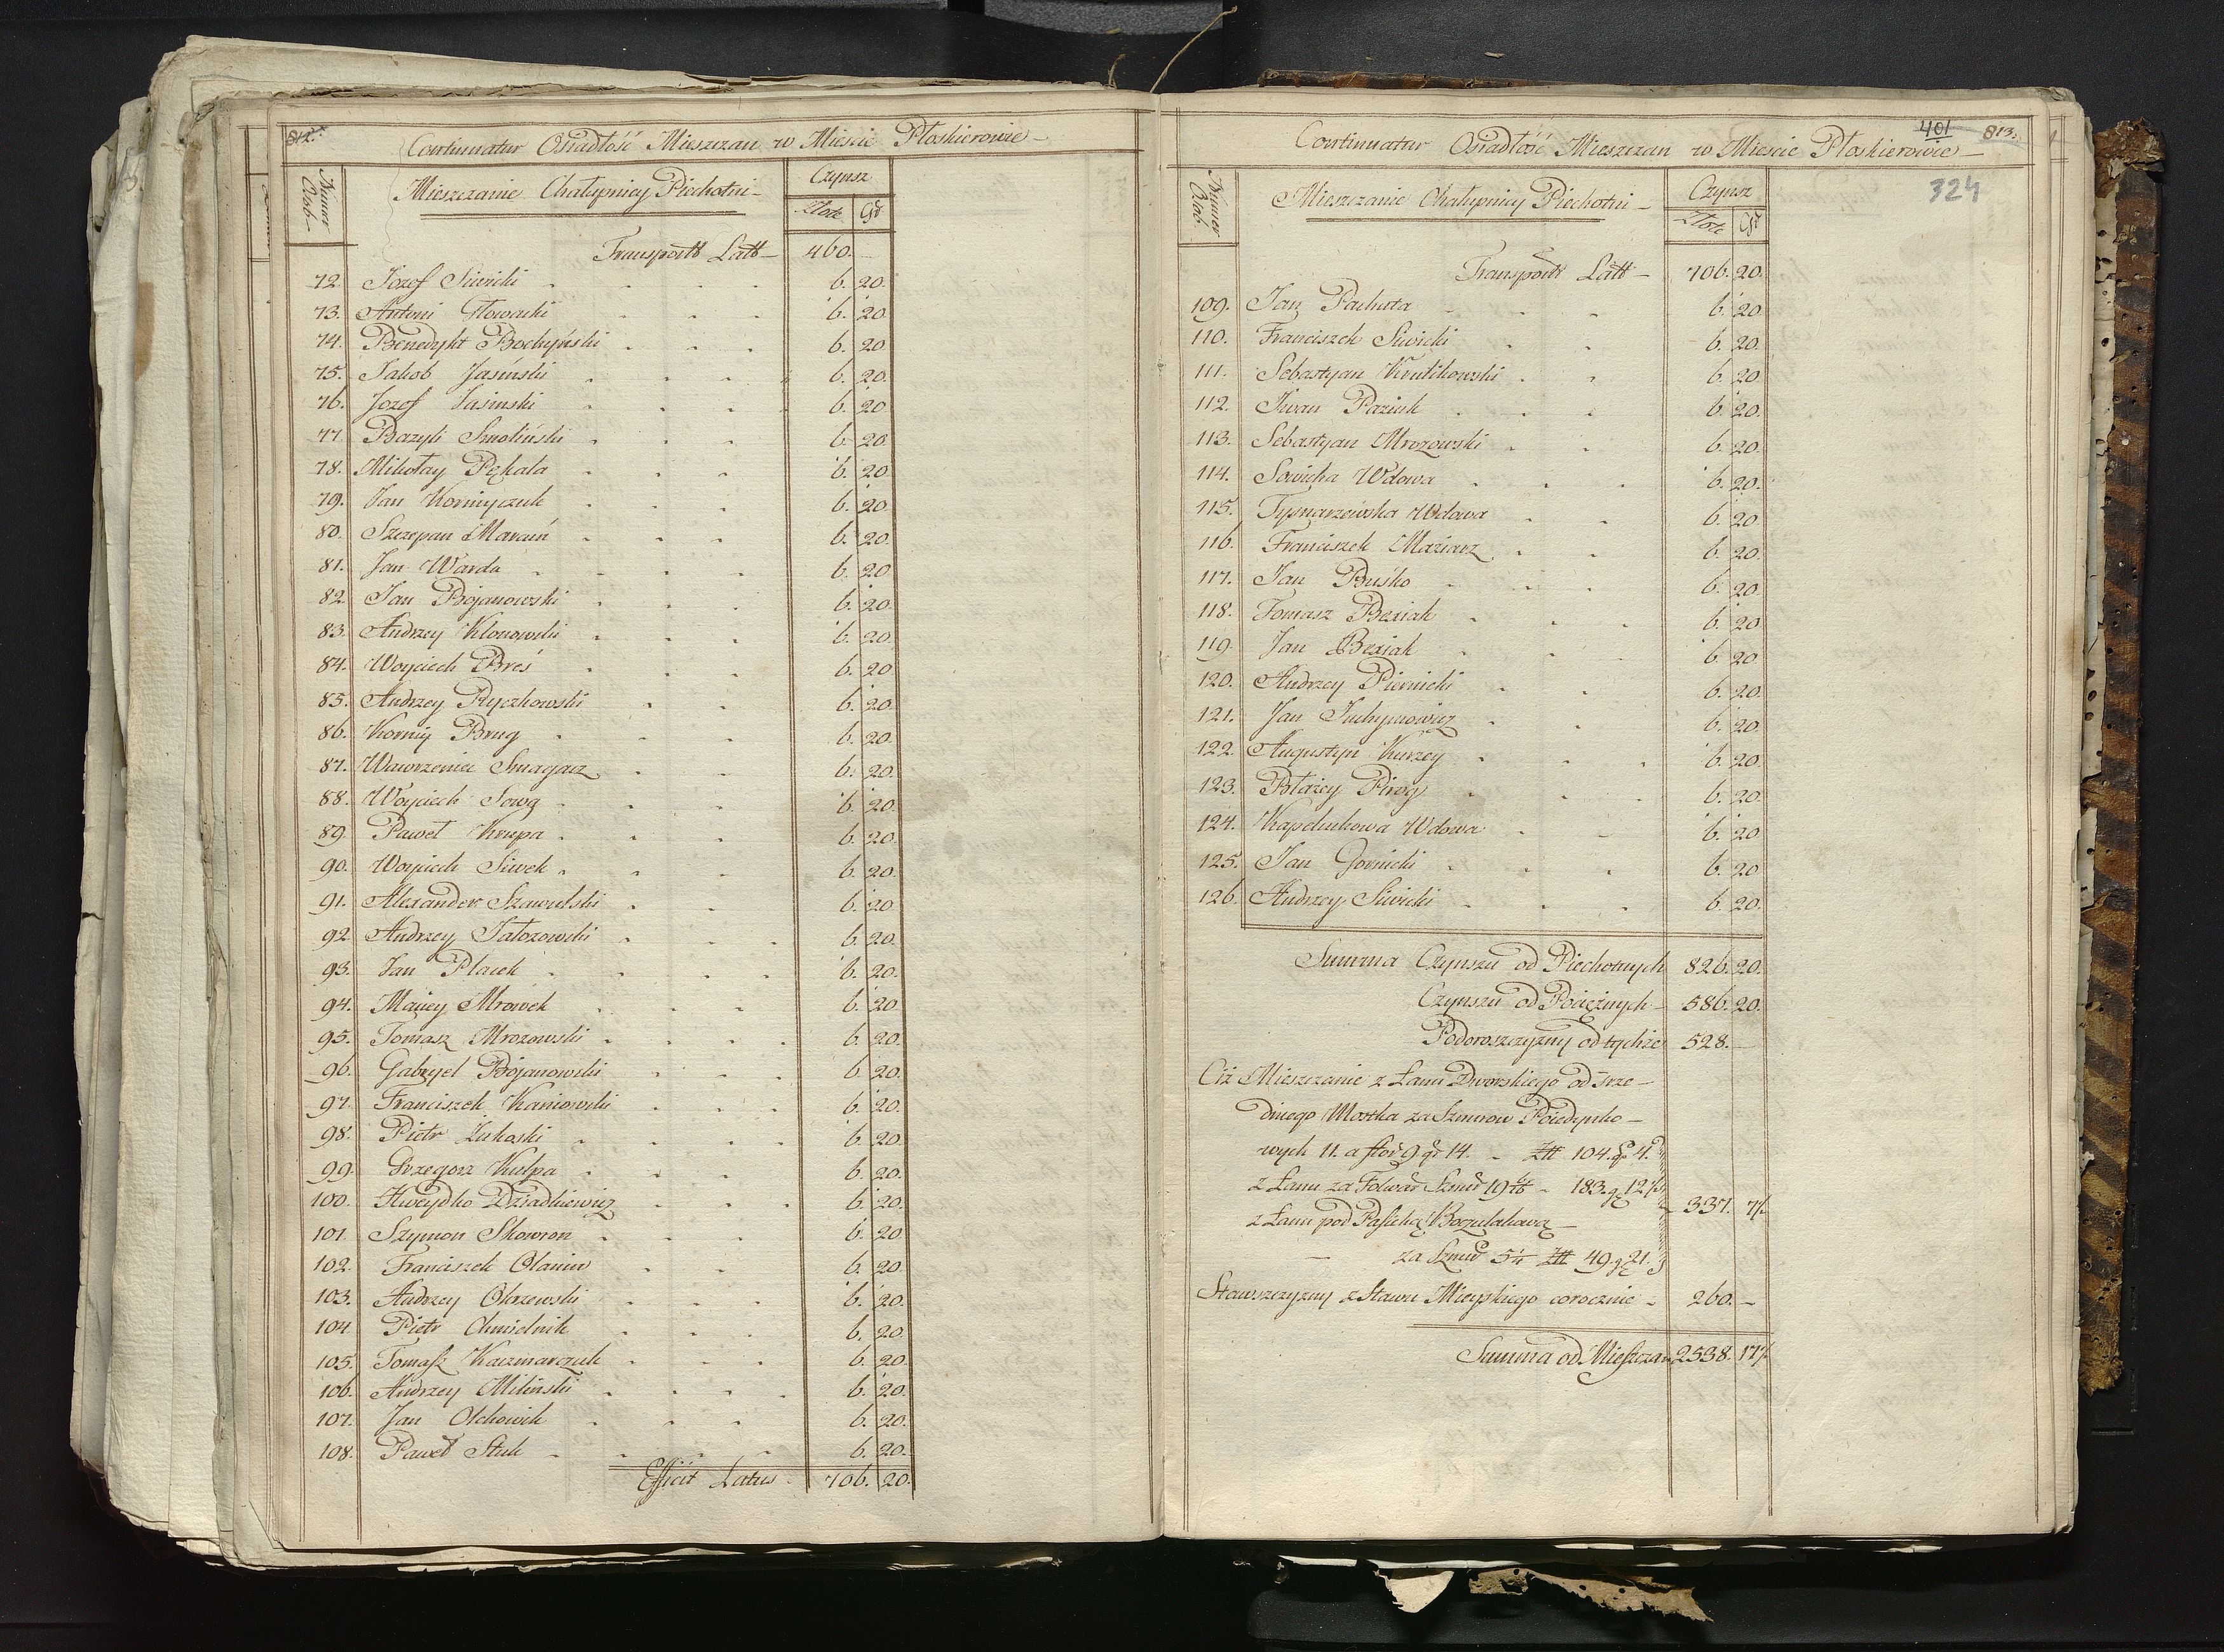 812.
Continuatur Osiadłość Mieszczan w Mieście Płoskierowie
Numer Osob
Mieszczanie Chałupnicy Piechotni
Czynsz
Złote Gr
Transport Latt 460. —
72. Jozef Siwicki 6. 20.
73. Antoni Głowacki 6. 20
74. Benedykt Bochyński 6. 20
75. Jakob Jasiński 6. 20.
76. Jozef Jasinski 6. 20
77. Bazyli Smoliński 6. 20
78. Mikołay Pękala 6. 20
79. Jan Korniyczuk 6. 20
80. Szczepan Marcin 6. 20.
81. Jan Warda 6. 20
82. Jan Bojanowski 6. 20
83. Andrzey Klonowski 6. 20.
84. Woyciech Breś 6. 20
85. Andrzey Ryczkowski 6. 20.
86. Korniy Brug 6. 20.
87. Wawrzeniec Smagacz 6. 20.
88. Woyciech Sowa 6. 20.
89. Paweł Krupa 6. 20.
90. Woyciech Siwek 6. 20.
91. Alexander Szawulski 6. 20
92. Andrzey Jatozowski 6. 20.
93. Jan Placek 6. 20.
94. Maciey Mrowek 6. 20
95. Tomasz Mrozowski 6. 20.
96. Gabryel Bojanowski 6 20.
97. Franciszek Kaniowski 6. 20.
98. Piotr Żukoski 6. 20.
99. Grzegorz Kulpa 6. 20.
100. Hweydko Dziadkiewicz 6. 20.
101. Szymon Skowron 6. 20
102. Franciszek Olanin 6. 20.
103. Andrzey Okrzewski 6. 20.
104. Piotr Chmielnik 6. 20.
105. Tomasz Kaczmarczuk 6. 20.
106. Andrzey Miliński 6. 20.
107. Jan Olchowik 6. 20.
108. Paweł Stuk 6. 20.
Efficit Latus 706. 20.
401 813.
324
Continuatur Osiadłość Mieszczan w Mieście Płoskierowie
Numer Osob
Mieszczanie Chałupnicy Piechotni
Czynsz
Złote Gr
Transport Latt 706. 20.
109. Jan Pachuta 6. 20
110. Franciszek Siwicki 6. 20.
111. Sebastyan Krulikowski 6. 20
112. Iwan Paziuk 6. 20.
113. Sebastyan Mrozowski 6. 20
114. Sowicha Wdowa 6. 20.
115. Tysnarzewska Wdowa 6. 20
116. Franciszek Maziarz 6. 20.
117. Jan Buśko 6. 20
118. Tomasz Bexiak 6. 20
119. Jan Bexiak 6. 20
120. Andrzey Piernicki 6. 20.
121. Jan Juchymowicz 6. 20
122. Augustyn Kurzey 6. 20.
123. Błażey Pirog 6. 20.
124. Kapeluchowa Wdowa 6. 20
125. Jan Gornicki 6. 20
126. Andrzey Siwicki 6. 20.
Summa Czynszu od Piechotnych 826. 20.
Czynszu od Pociężnych 586. 20.
Podoroszczyzny od tychże 528. —
Ciż Mieszczanie z Łanu Dworskiego od śrze-
dniego Mostka za Sznurow Poiedynko-
wych 11. a flor 9. gr 14. Złt 104. gr 4.
z Łanu za Folwar Sznur 183. gr 12½
z Łanu pod Pasieką 337. 7½
za Sznur 5¼ Złt 49. gr 21.
Stawszczyzny z Stawu Mieyskiego corocznie 260. —
Summa od Mieszczan 2538. 17½